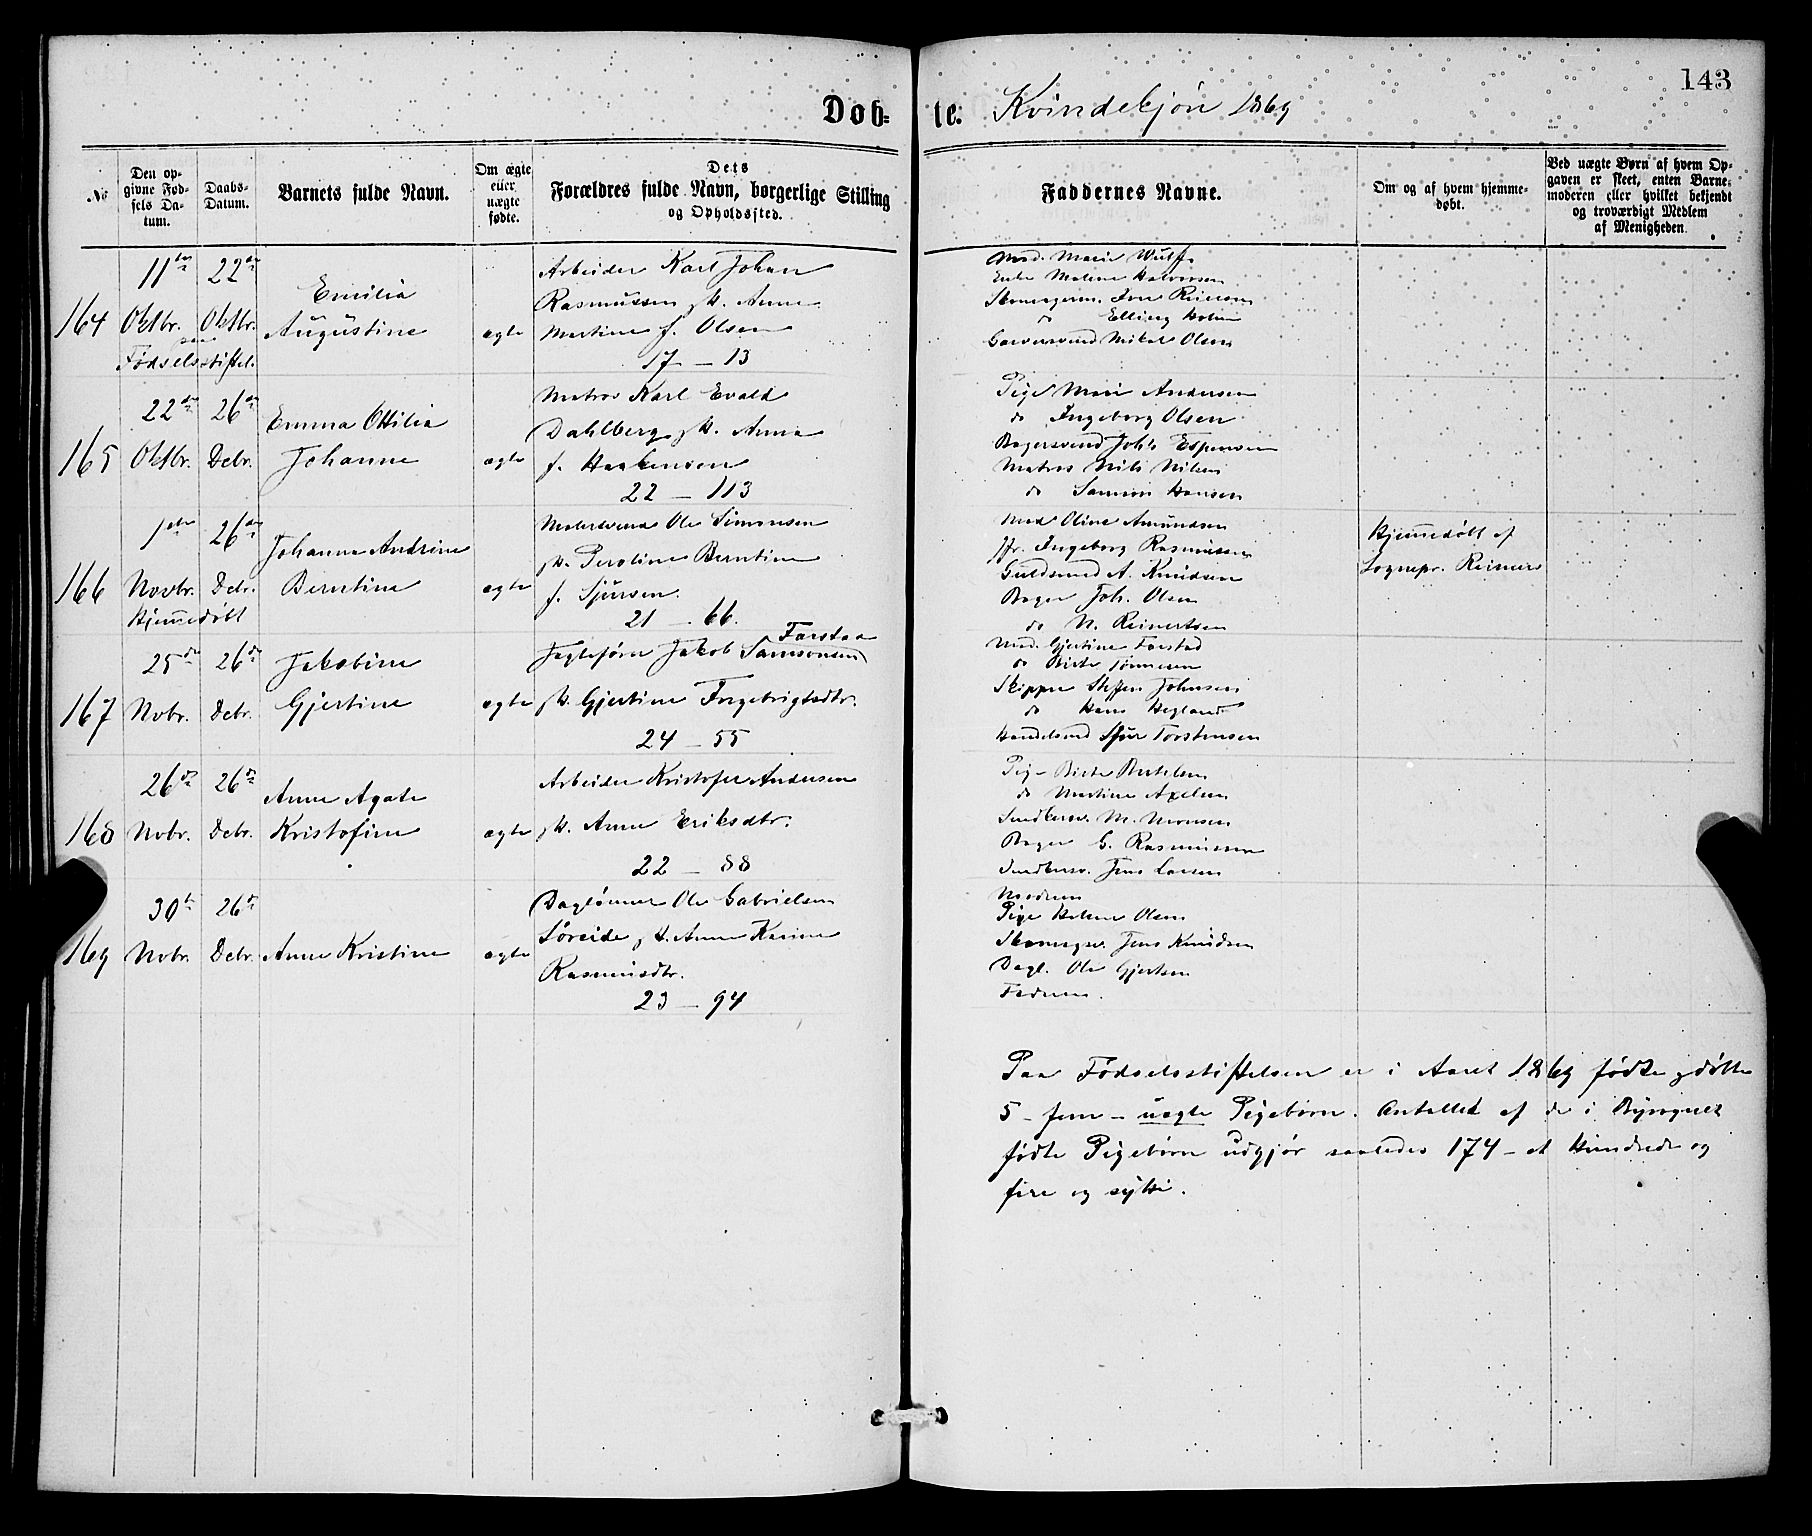 143
Døb-te. Kvindekjøn 1869
No
Den op-
givne Fød-
sels Da-
tum.
Daabs-
Datum.
Barnets fulde Navn.
Om ægte
eller
uægte
fødte.
Dets
Forældres fulde Navn, borgerlige Stilling
og Opholdssted.
Faddernes Navne.
Om og af hvem hjemme-
døbt.
Ved uægte Børn af hvem Op-
gaven er skeet, enten Barne-
moderen eller hvilket bekjendt
og troværdigt Medlem
af Menigheden.
164
11te
Oktbr.
22de
Oktbr.
paa
Fødselsstiftel.
Emilia
Augustine
ægte
Arbeider Karl Johan
Rasmussen & H. Anne
Martine f. Olsen
17 - 13
Mad. Marie Wulff
Enke Malene Halvorsen
Skomagerm. Iver Reiersen
do Elling Holm
Garversvend Mikal Olsen
165
22de
Oktbr.
26de
Debr.
Emma Ottilia
Johanne
ægte
Matros Karl Evald
Dahlberg & H. Anna
f. Haakensen
22 - 113
Pige Marie Andersen
do Ingeborg Olsen
Bagersvend Johs Espensen
Matros Nils Nilsen
do Samson Hansen
166
1ste
Novbr.
Hjemmedøbt
26de
Debr.
Johanne Andrine
Berntine
ægte
Malersvend Ole Simonsen
& H. Peroline Berntine
f. Sjursen.
21 - 66.
Mad Oline Amundsen
Jfr. Ingeborg Rasmussen
Guldsmed A. Knudsen
Bager Joh. Olsen
do N. Reinertsen
Hjemmedøbt af
Sognepr. Reimers
167
25de
Nvbr.
26de
Debr.
Jakobine
Gjertine
ægte
Farstad
Jagtefører Jakob Samsonsen
& H. Gjertine Ingebrigtsdtr.
24 - 55
Mad. Gjertine Farstad
do Birte Tønnesen
Skipper Steffen Johnsen
do Hans Hegland
Handelsmd Sjur Torstensen
168
26de
Nvbr.
26de
Debr.
Anne Agate
Kristofine
ægte
Arbeider Kristofer Andersen
& H. Anne Eriksdtr.
22 - 88
Pige Birte Bertelsen
do Martine Axelsen
Snedkersv. M. Monsen
Bager G. Rasmussen
Snedkersv. Jens Larsen
169
30te
Nvbr.
26de
Debr.
Anne Kristine
ægte
Daglønner Ole Gabrielsen
Søreide & H. Anne Karine
Rasmusdtr.
23 - 94
Moderen
Pige Helene Olsen
Skomagsv. Jens Knudsen
Dagl. Ole Gjertsen
Faderen.
Paa Fødselsstiftelsen er i Aaret 1869 fødte & døbte
5 - fem - uægte Pigebørn. Antallet af de i Bysognet
fødte Pigebørn udgjør saaledes 174 - et Hundrede og
fire og sytti.